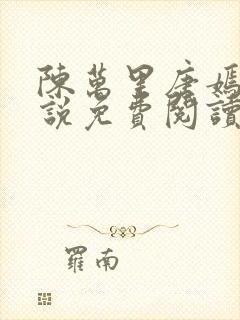 陳萬里唐嫣
說免費閱讀
羅南